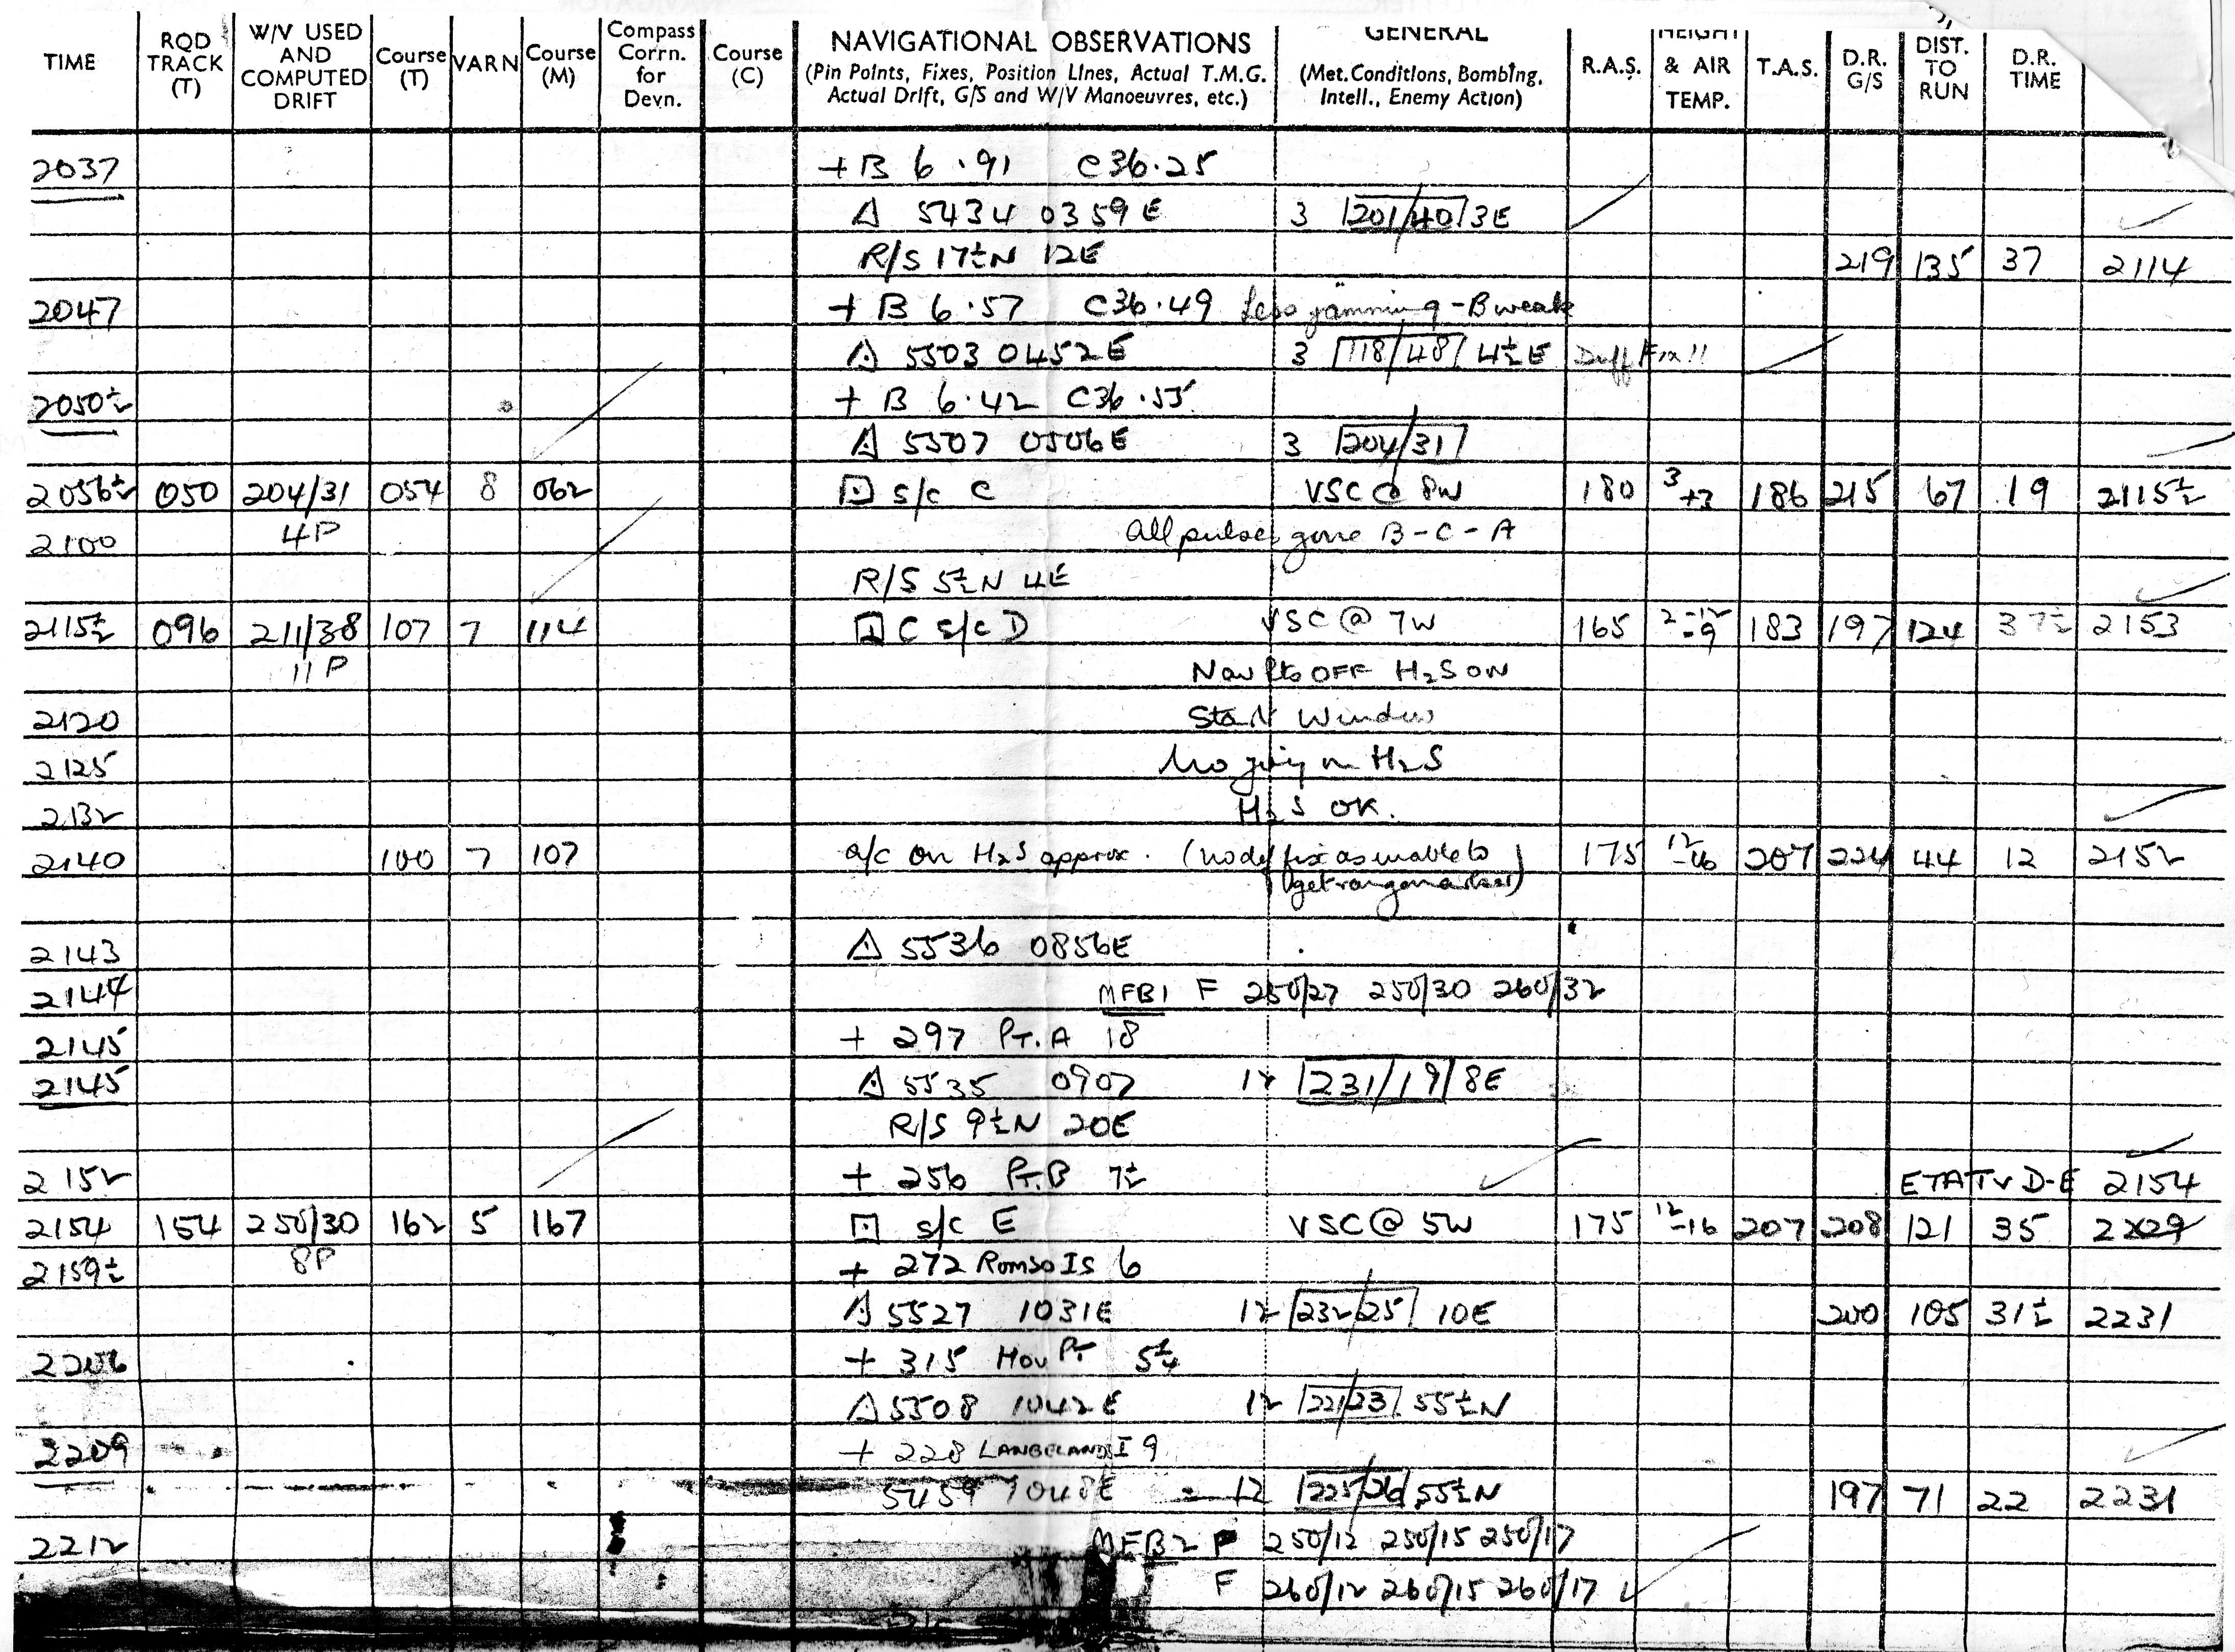 TIME RQD TRACK (T) W/V USED AND COMPUTED DRIFT Course (T) VARN Course (M) Compass Corrn. for Devn. Course (C) NAVIGATIONAL OBSERVATIONS (Pin Points, Fixes, Position Lines, Actual T.M.G. Actual Drift, G/S and W/V Manoeuvres, etc.) GENERAL (Met. Conditions, Bombing, Intell., Enemy Action) R.A.S. HEIGHT & AIR TEMP. T.A.S. D.R. G/S DIST. TO RUN D.R. TIME
2037 + B 6.91 C 36.25
△ 5434 0359E 3 201/40 3E
R/S 17½N 12E 219 135 37 2114
2047 + B 6.57 C36.49 Less jamming - B weak
△ 5503 0452E 3 118/48 4½E Duff Fix!!
2050½ + B 6.42 C36.55
△ 5507 0506E 3 204/31
2056½ 050 204/31 054 8 062 □ s/c C VSC @ 8W 180 3 +3 186 215 67 19 2115½
4P
2100 All pulses gone B-C-A
R/S 5½N 4E
2115½ 096 211/38 107 7 114 □ C s/c D VSC @ 7W 165 2-12 -9 183 197 124 37½ 2153
11P
Nav Lts OFF H2S ON
2120 Start Window
2125 No joy on H2S
2132 H2S OK.
2140 100 7 107 a/c on H2S approx. (no def fix as unable to get rangemarker) 175 12 -16 207 224 44 12 2152
2143 △ 5536 0856E
2144 MFB1 F 250/27 250/30 260/32
2145 + 297 Pt. A 18
2145 △ 5535 0907 12 231/19 8E
R/S 9½N 20E
2152 + 256 Pt. B 7½ ETA TV D-E 2154
2154 154 250/30 162 5 167 □ s/c E VSC @ 5W 175 12 -16 207 208 121 35 2229
8P
2159½ + 272 Romso Is 6
△ 5527 1031E 12 232/25 10E 200 105 31½ 2231
2206 + 315 Hov Pt 5¼
△ 5508 1042E 12 221/23 55½N
2209 + 228 LANGELANDS I 9
5459 1048E 12 225/26 55½N 197 71 22 2231
2212 MFB2 F 250/12 250/15 250/17
F 260/12 260/15 260/17